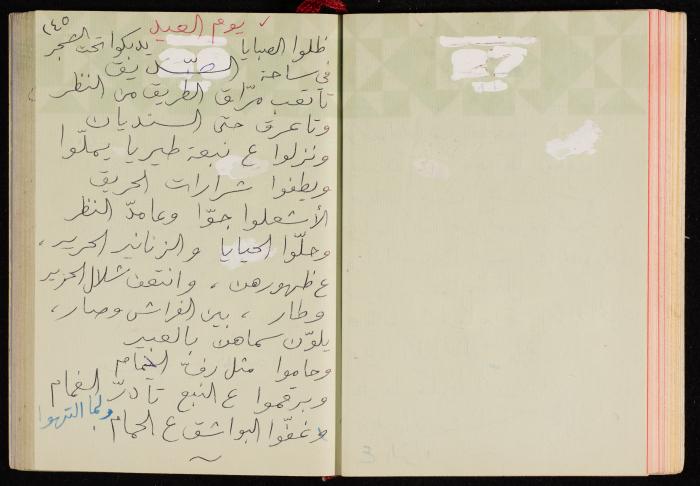 ١٤٥
يوم العيد
ظلوا الصبايا يدبكوا تحت الشجر
في ساحة
تا تعب مرّاق الطريق من النظر
وتا عرق حتى السنديان
ونزلوا ع نبعة طيريا يملّوا
ويطفوا شرارات الحريق
الأشعلوا جوّا وعامدّ النظر
وحلّوا الحيايا والزنانير الحرير،
ع ظهورهن، وانتفض شلال الحرير
وطار، بين الفراش وصار،
يلوّن سماهن بالعبير
وحاموا مثل رفّ اليمام
وبرقموا ع النبع تا درّ الغمام
ولما التهوا
غفّوا البواشق ع الحمام